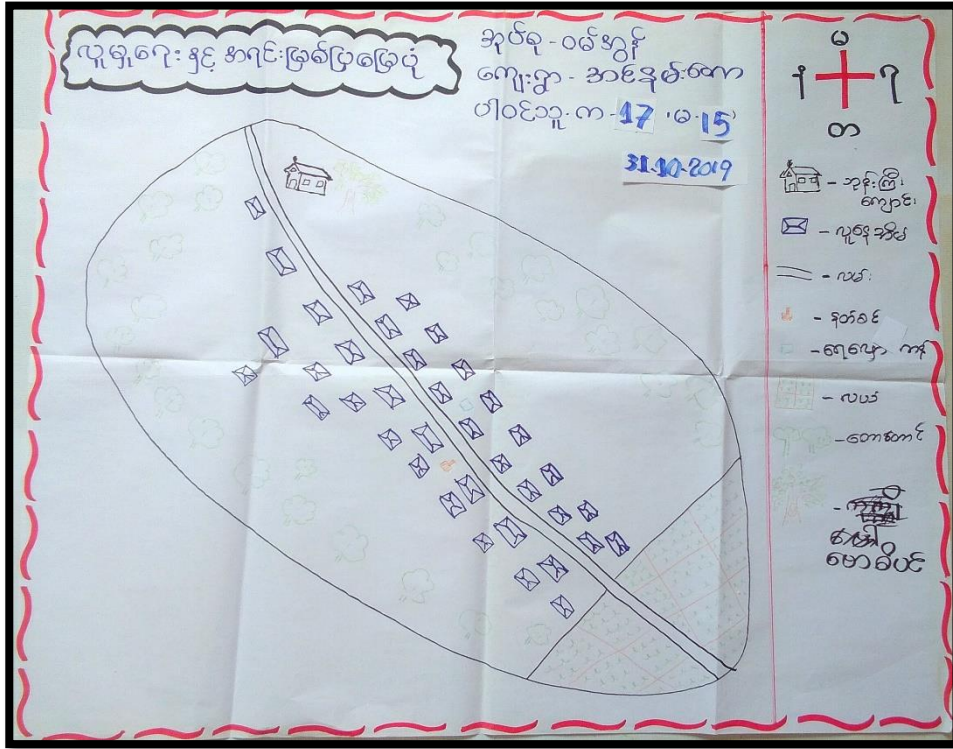 လူမှုရေး နှင့် အရင်းမြစ်ပြမြေပုံ
အုပ်စု - ဝမ်အွန်
ကျေးရွာ -
ပါဝင်သူ - က - 17 ၊ မ - 15
31.10.2019
မ
န
ရ
တ
- ဘုန်းကြီး
ကျောင်း
- လူနေအိမ်
- လမ်း
- နတ်စင်
- ရေလှောင်ကန်
- လယ်
- တောတောင်
ဗောဓိပင်